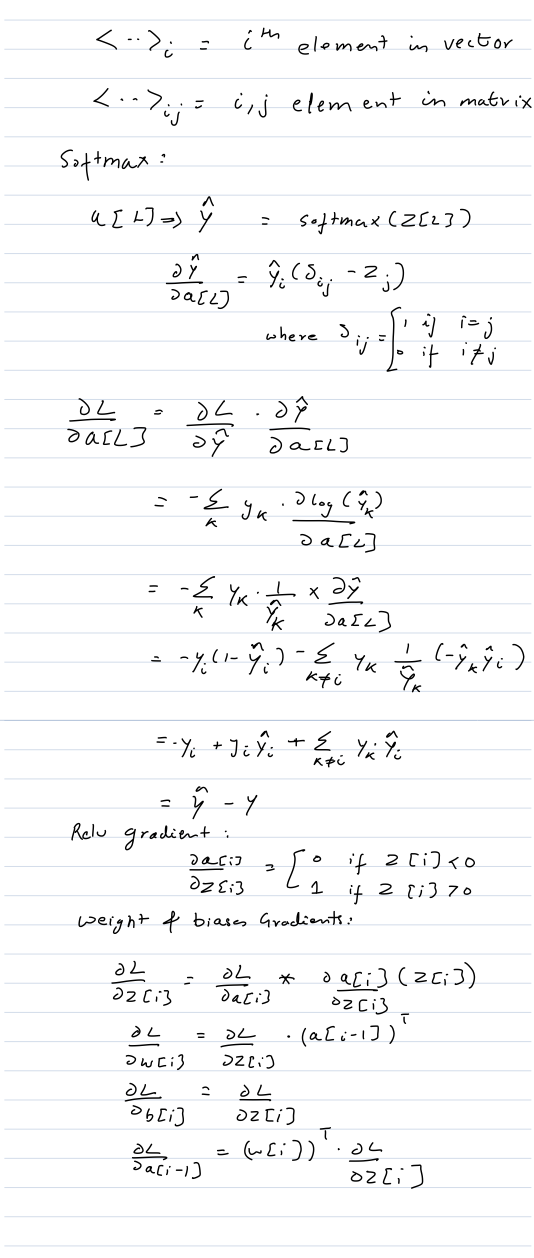 <··>ᵢ = iᵗʰ element in vector
<··>ᵢⱼ = i,j element in matrix
Softmax :
a[L] => Ŷ = softmax(Z[L])
∂Ŷ/∂a[L] = ŷᵢ(δᵢⱼ - zⱼ)
where δᵢⱼ = [1 if i=j
0 if i≠j
∂L/∂a[L] = ∂L/∂Ŷ · ∂Ŷ/∂a[L]
= -Σ_k y_k · ∂log(ŷ_k)/∂a[L]
= -Σ_k y_k · 1/ŷ_k × ∂Ŷ/∂a[L]
= -yᵢ(1-ŷᵢ) - Σ_{k≠i} y_k 1/ŷ_k (-ŷ_k ŷᵢ)
= -yᵢ + yᵢŷᵢ + Σ_{k≠i} y_k·ŷᵢ
= ŷ - y
Relu gradient :
∂a[i]/∂Z[i] = [0 if Z[i]<0
1 if Z[i]>0
Weight & biases Gradients:
∂L/∂Z[i] = ∂L/∂a[i] * ∂a[i]/∂Z[i] (Z[i])
∂L/∂w[i] = ∂L/∂Z[i] · (a[i-1])ᵀ
∂L/∂b[i] = ∂L/∂Z[i]
∂L/∂a[i-1] = (w[i])ᵀ · ∂L/∂Z[i]